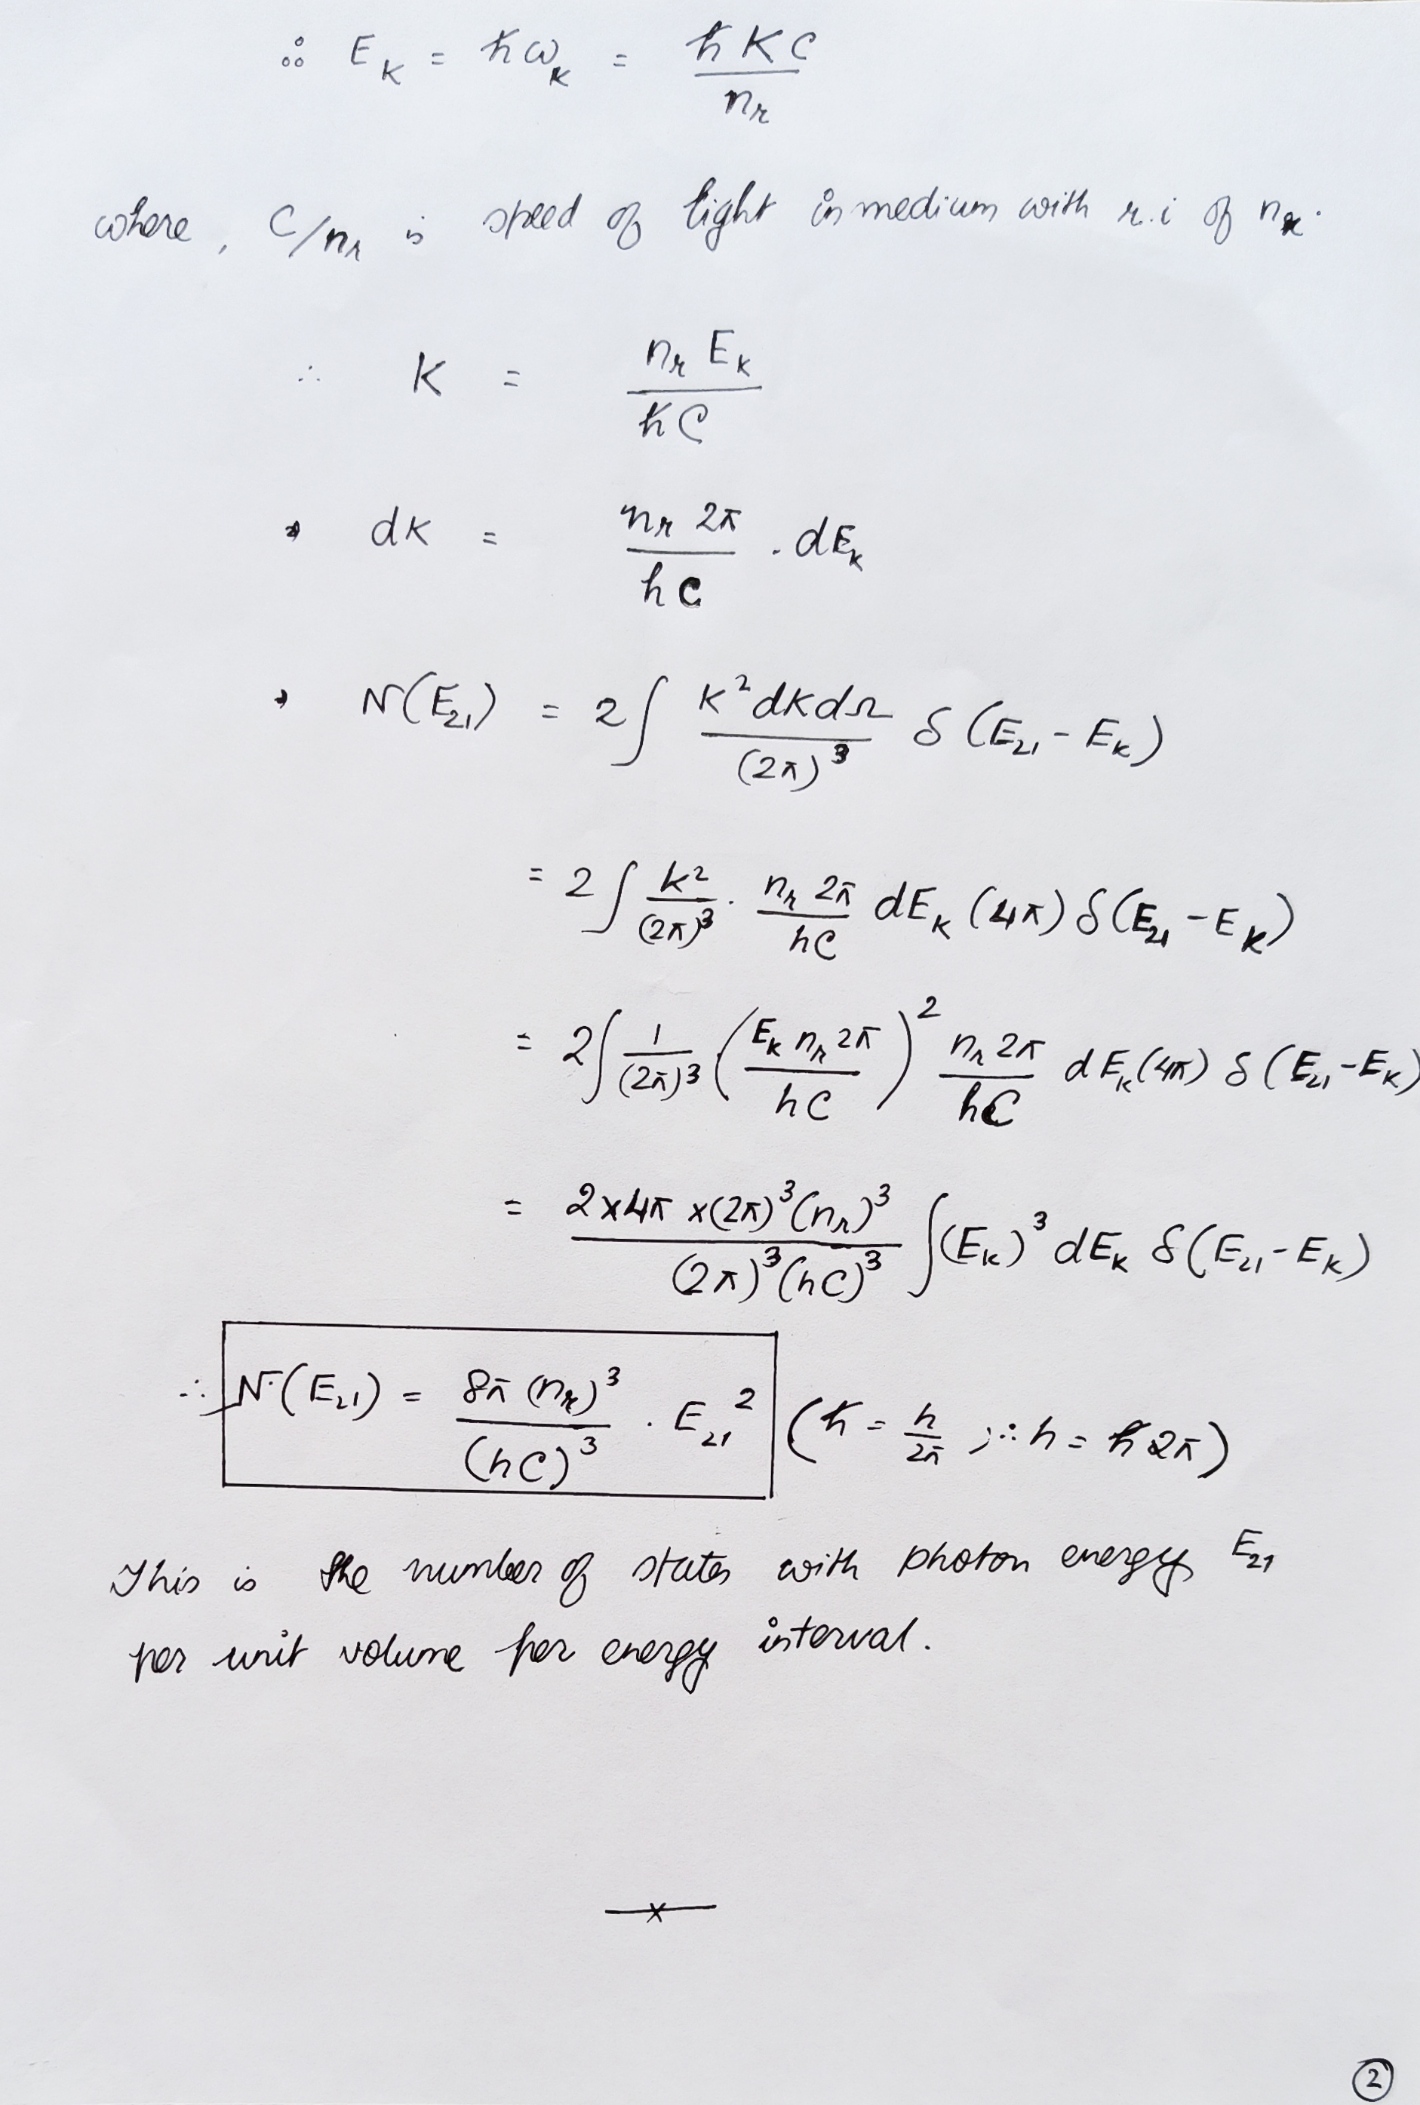 ∴ E_K = ħω_K = ħKC / n_r
where, C/n_r is speed of light in medium with r.i of n_r.
∴ K = n_r E_K / ħC
* dK = n_r 2π / hC . dE_K
* N(E₂₁) = 2∫ K² dK dΩ / (2π)³ δ(E₂₁ - E_K)
= 2∫ k² / (2π)³ . n_r 2π / hC dE_K (4π) δ(E₂₁ - E_K)
= 2∫ 1 / (2π)³ (E_K n_r 2π / hC)² n_r 2π / hC dE_K (4π) δ(E₂₁ - E_K)
= 2×4π ×(2π)³(n_r)³ / (2π)³(hC)³ ∫(E_K)³ dE_K δ(E₂₁ - E_K)
∴ N(E₂₁) = 8π (n_r)³ / (hC)³ . E₂₁² (ħ = h / 2π ; ∴ h = ħ2π)
This is the number of states with photon energy E₂₁
per unit volume per energy interval.
2